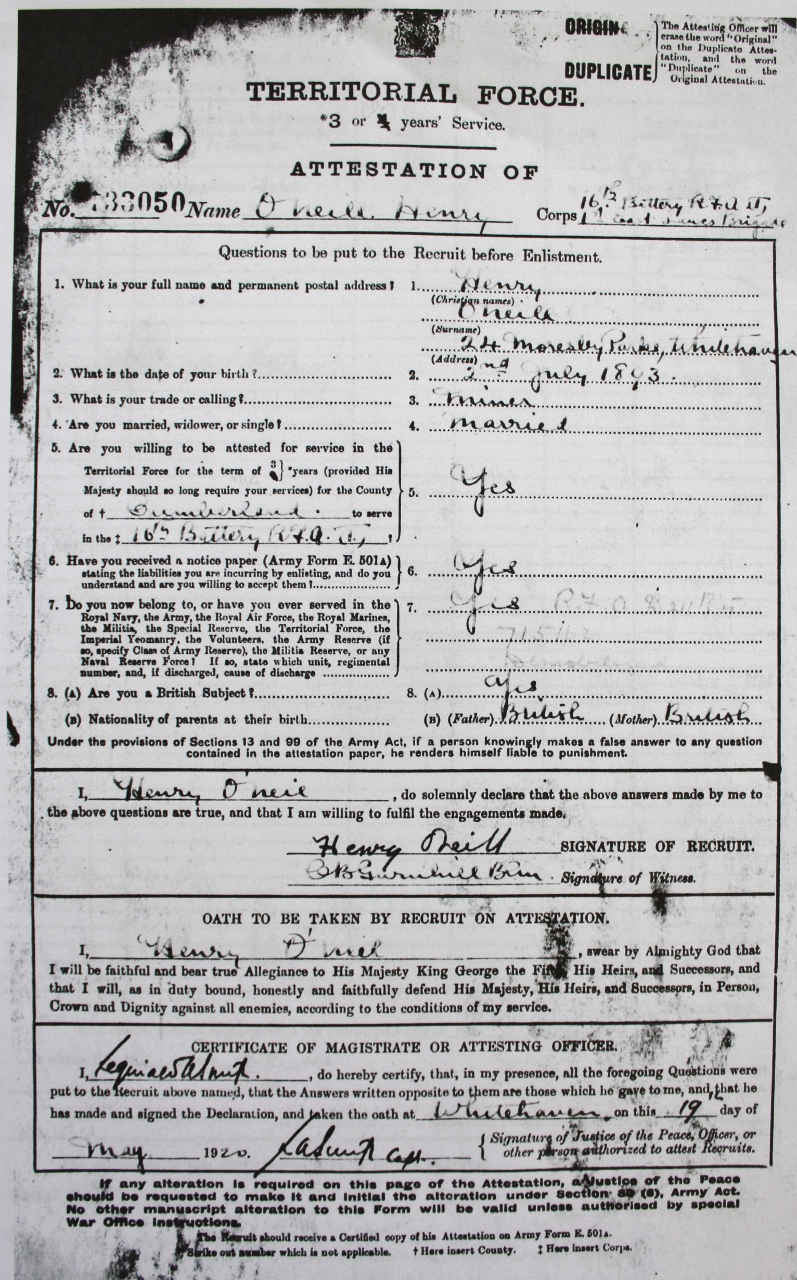 ORIGIN
DUPLICATE
The Attesting Officer will
erase the word "Original"
on the Duplicate Attes-
tation, and the word
"Duplicate" on the
Original Attestation.
TERRITORIAL FORCE.
*3 or 4 years' Service.
ATTESTATION OF
No. 733050 Name O'Neill Henry Corps 16th Battery R.F.A. (T)
East Lancs Brigade
Questions to be put to the Recruit before Enlistment.
1. What is your full name and permanent postal address? 1. Henry
(Christian names)
O'Neill
(Surname)
24 Moresby Parks, Whitehaven
(Address)
2. What is the date of your birth? 2. 2nd July 1893.
3. What is your trade or calling? 3. Miner
4. Are you married, widower, or single? 4. Married
5. Are you willing to be attested for service in the
Territorial Force for the term of 3 *years (provided His
Majesty should so long require your services) for the County
of † Cumberland. to serve
in the ‡ 16th Battery R.F.A. (T) ? 5. Yes
6. Have you received a notice paper (Army Form E. 501A)
stating the liabilities you are incurring by enlisting, and do you
understand and are you willing to accept them? 6. Yes
7. Do you now belong to, or have you ever served in the
Royal Navy, the Army, the Royal Air Force, the Royal Marines,
the Militia, the Special Reserve, the Territorial Force, the
Imperial Yeomanry, the Volunteers, the Army Reserve (if
so, specify Class of Army Reserve), the Militia Reserve, or any
Naval Reserve Force? If so, state which unit, regimental
number, and, if discharged, cause of discharge 7. Yes R.F.A.
8. (A) Are you a British Subject? 8. (A) Yes
(B) Nationality of parents at their birth (B) (Father) British (Mother) British
Under the provisions of Sections 13 and 99 of the Army Act, if a person knowingly makes a false answer to any question
contained in the attestation paper, he renders himself liable to punishment.
I, Henry O'neil, do solemnly declare that the above answers made by me to
the above questions are true, and that I am willing to fulfil the engagements made.
Henry Oneill SIGNATURE OF RECRUIT.
Signature of Witness.
OATH TO BE TAKEN BY RECRUIT ON ATTESTATION.
I, Henry O'niel, swear by Almighty God that
I will be faithful and bear true Allegiance to His Majesty King George the Fifth, His Heirs, and Successors, and
that I will, as in duty bound, honestly and faithfully defend His Majesty, His Heirs, and Successors, in Person,
Crown and Dignity against all enemies, according to the conditions of my service.
CERTIFICATE OF MAGISTRATE OR ATTESTING OFFICER.
I, do hereby certify, that, in my presence, all the foregoing Questions were
put to the Recruit above named, that the Answers written opposite to them are those which he gave to me, and that he
has made and signed the Declaration, and taken the oath at Whitehaven on this 19 day of
May 1920. Capt. Signature of Justice of the Peace, Officer, or
other person authorized to attest Recruits.
If any alteration is required on this page of the Attestation, a Justice of the Peace
should be requested to make it and initial the alteration under Section 80 (6), Army Act.
No other manuscript alteration to this Form will be valid unless authorised by special
War Office instructions.
The Recruit should receive a Certified copy of his Attestation on Army Form E. 501A.
*Strike out number which is not applicable. † Here insert County. ‡ Here insert Corps.